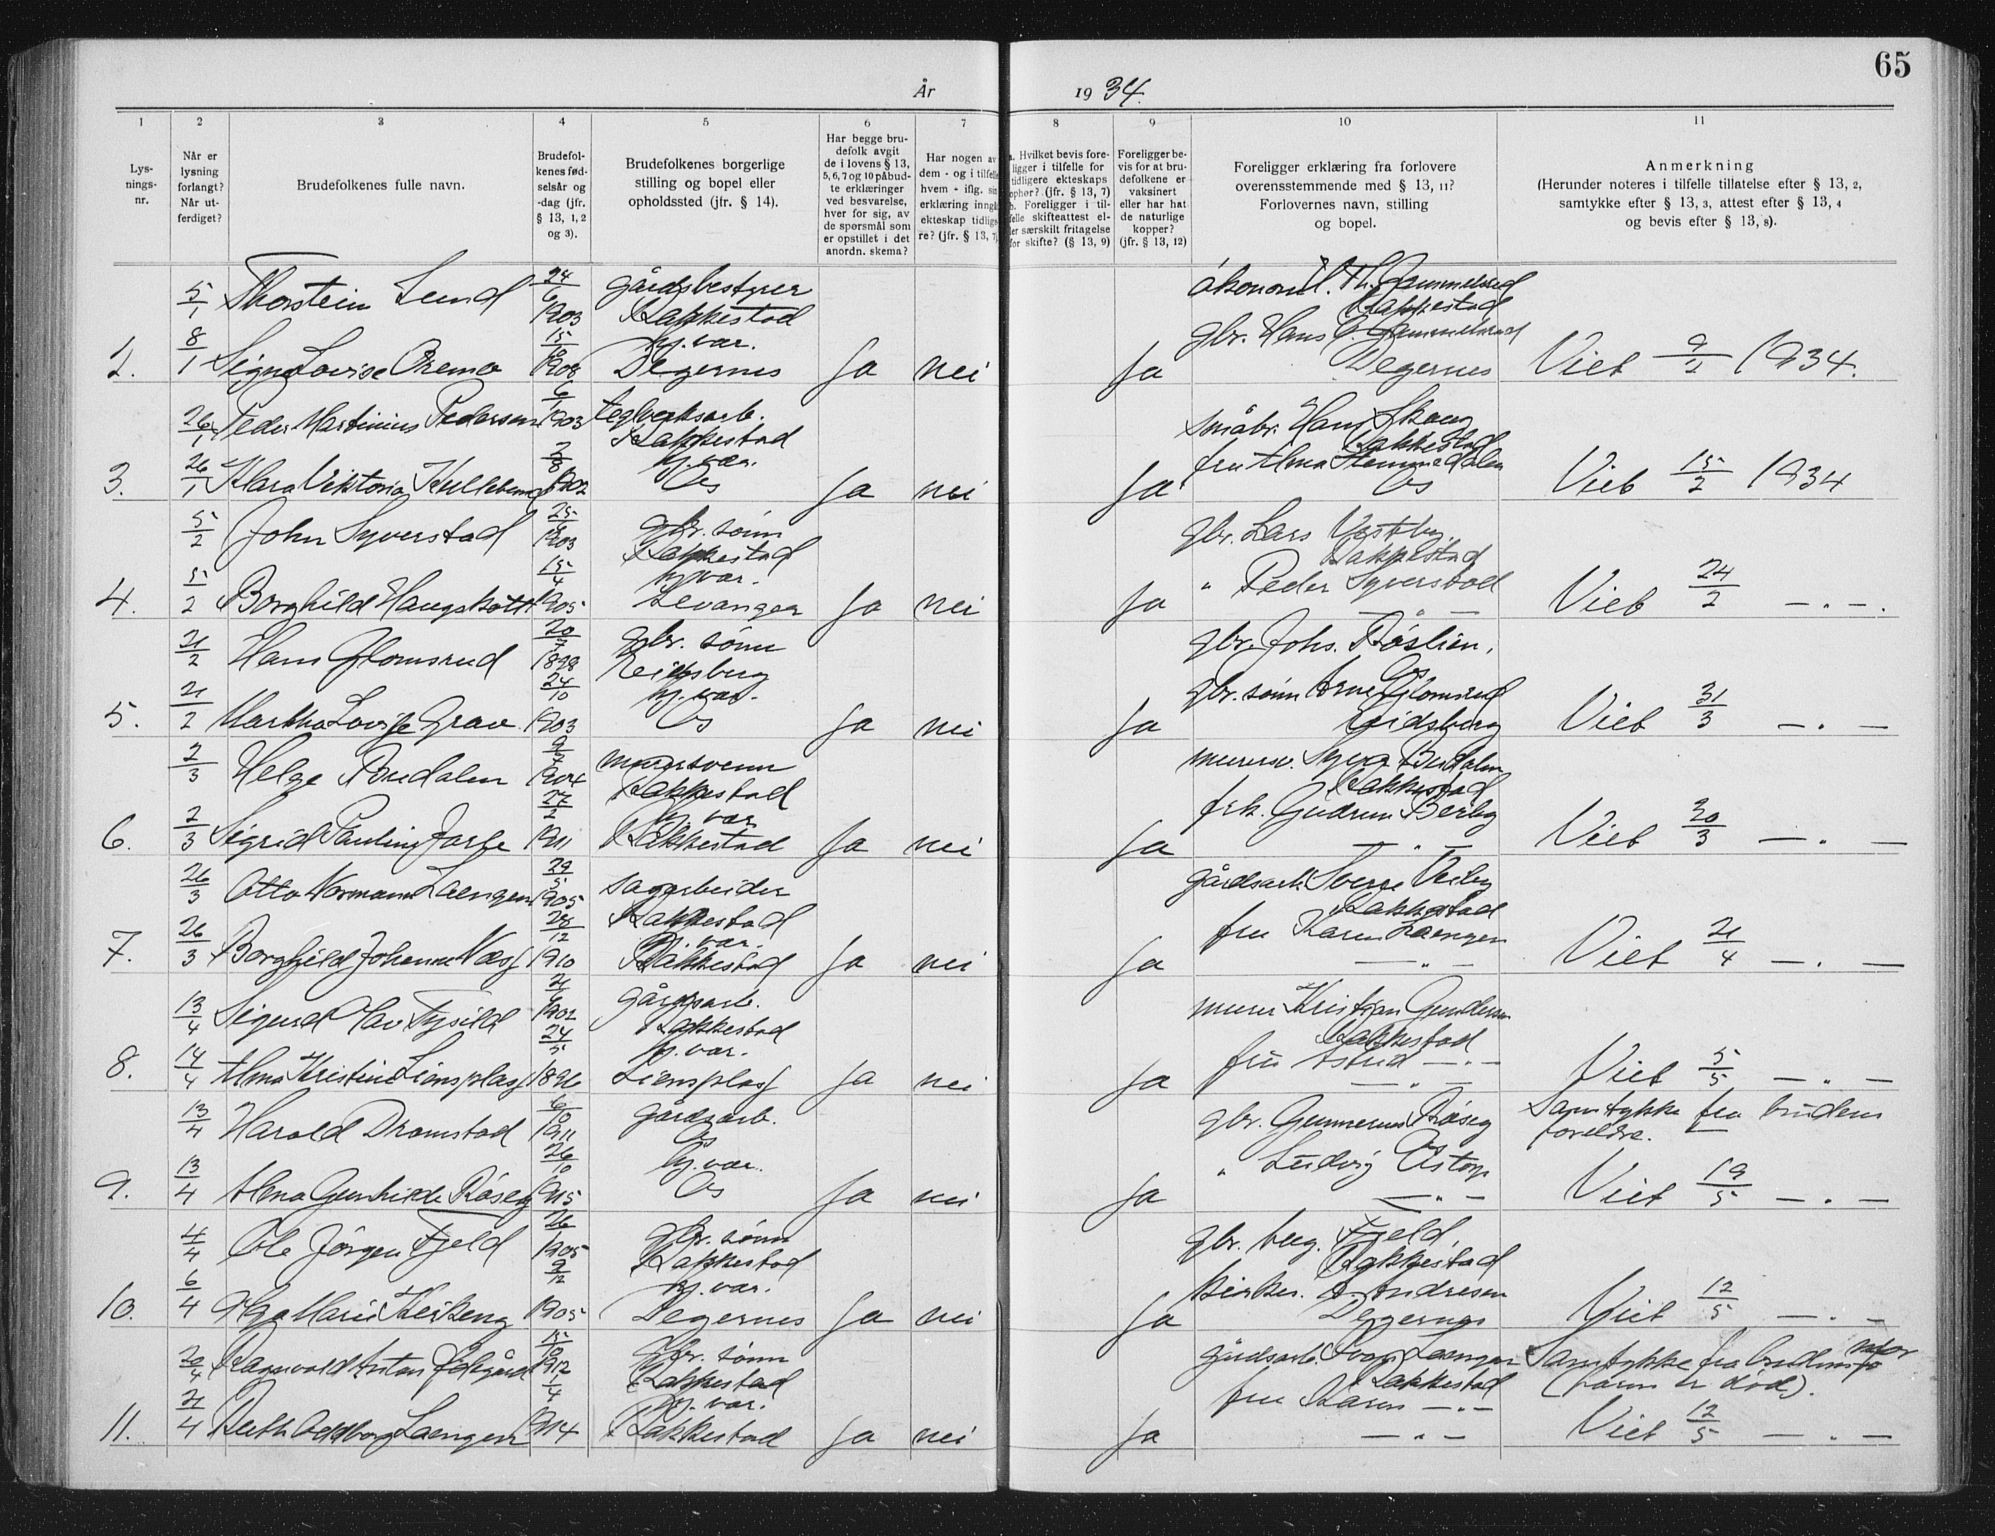 65
År 1934.
1 2 3 4 5 6 7 8 9 10 11
Lysningsnr.
Når er lysning forlangt? Når utferdiget?
Brudefolkenes fulle navn.
Brudefolkenes fødselsår og -dag (jfr. § 13, 1, 2 og 3).
Brudefolkenes borgerlige stilling og bopel eller opholdssted (jfr. § 14).
Har begge brudefolk avgit de i lovens § 13, 5, 6, 7 og 10 påbudte erklæringer ved besvarelse, hver for sig, av de spørsmål som er opstillet i det anordn. skema?
Har nogen av dem - og i tilfelle hvem - iflg. sin erklæring inngått ekteskap tidligere? (jfr. § 13, 7)
a. Hvilket bevis foreligger i tilfelle for tidligere ekteskaps ophør? (jfr. § 13, 7) b. Foreligger i tilfelle skifteattest eller særskilt fritagelse for skifte? (§ 13, 9)
Foreligger bevis for at brudefolkene er vaksinert eller har hat de naturlige kopper? (jfr. § 13, 12)
Foreligger erklæring fra forlovere overensstemmende med § 13, 11? Forlovernes navn, stilling og bopel.
Anmerkning (Herunder noteres i tilfelle tillatelse efter § 13, 2, samtykke efter § 13, 3, attest efter § 13, 4 og bevis efter § 13, 8).
5/1 Thorstein Lund 24/6 1903 gårdsbestyrer Rakkestad
2. 8/1 Signe Lovise 1908 hj.vær. Degernes Ja nei Ja gbr. Hans Degernes Viet 9/2 1934.
26/1 Peder Martinius Pedersen 1903 teglverksarb. Rakkestad småbr. Hans Skaug Rakkestad
3. 26/1 Klara Viktoria 2/8 1902 hj.vær. Os Ja nei Ja fru Alma Os Viet 15/2 1934
5/2 John Syverstad 1903 gbr. sønn Rakkestad gbr. Lars Vestby. Rakkestad
4. 5/2 Borghild Haugskott 15/4 1905 hj.vær. Levanger Ja nei Ja " Peder Syverstad — " — Viet 24/2 —.—.
21/2 Hans Glomsrud 1898 gbr. sønn Eidsberg gbr. Johs. Røslien, Os
5. 21/2 Martha Lovise Grav 24/10 1903 hj.vær. Os Ja nei Ja gbr. sønn Arne Glomsrud Eidsberg Viet 31/3 —.—
2/3 Helge 1904 murersvenn Rakkestad murersv. Rakkestad
6. 2/3 Sigrid Pauline 27/2 1911 hj.vær. Rakkestad Ja nei Ja frk. Gudrun Berby — " — Viet 30/3 —.—
26/3 Otto Normann Laengen 29/5 1905 sagarbeider Rakkestad gårdsarb. Sverre Rakkestad
7. 26/3 Borghild Johanne Næss 28/12 1910 hj.vær. Rakkestad Ja nei Ja fru Karen Laengen — " — Viet 21/4 —.—
13/4 Sigurd Olav 1902 gårdsarb. Rakkestad murer Kristian Gundersen Rakkestad
8. 14/4 Alma Kristine Liensplass 24/5 1896 hj.vær. Liensplass Ja nei Ja fru Astrid — " — — " — Viet 5/5 —.—
13/4 Harald Dramstad 6/10 1911 gårdsarb. Os gbr. Gunnerius Råseg Samtykke fra brudens foreldre.
9. 13/4 Alma Gunhilde Råseg 26/10 1915 hj.vær. Os Ja nei Ja " Ludvig — " — Viet 19/5 —.—
4/4 Ole Jörgen Fjeld 1905 gbr. sønn Rakkestad gbr. Aug. Fjeld, Rakkestad
10. 6/4 Marie Kirkeng 9/12 1905 hj.vær. Degernes Ja nei Ja kirkes. A. Andresen Degernes Viet 12/5 —.—
20/4 Ragnvald Anton 15/10 1912 gbr. sønn Rakkestad gårdsarb. Laengen Rakkestad Samtykke fra brudens mor (faren er død).
11. 21/4 Ruth Oddborg Laengen 1/4 1914 hj.vær. Rakkestad Ja nei Ja fru Karen — " — — " — Viet 12/5 —.—